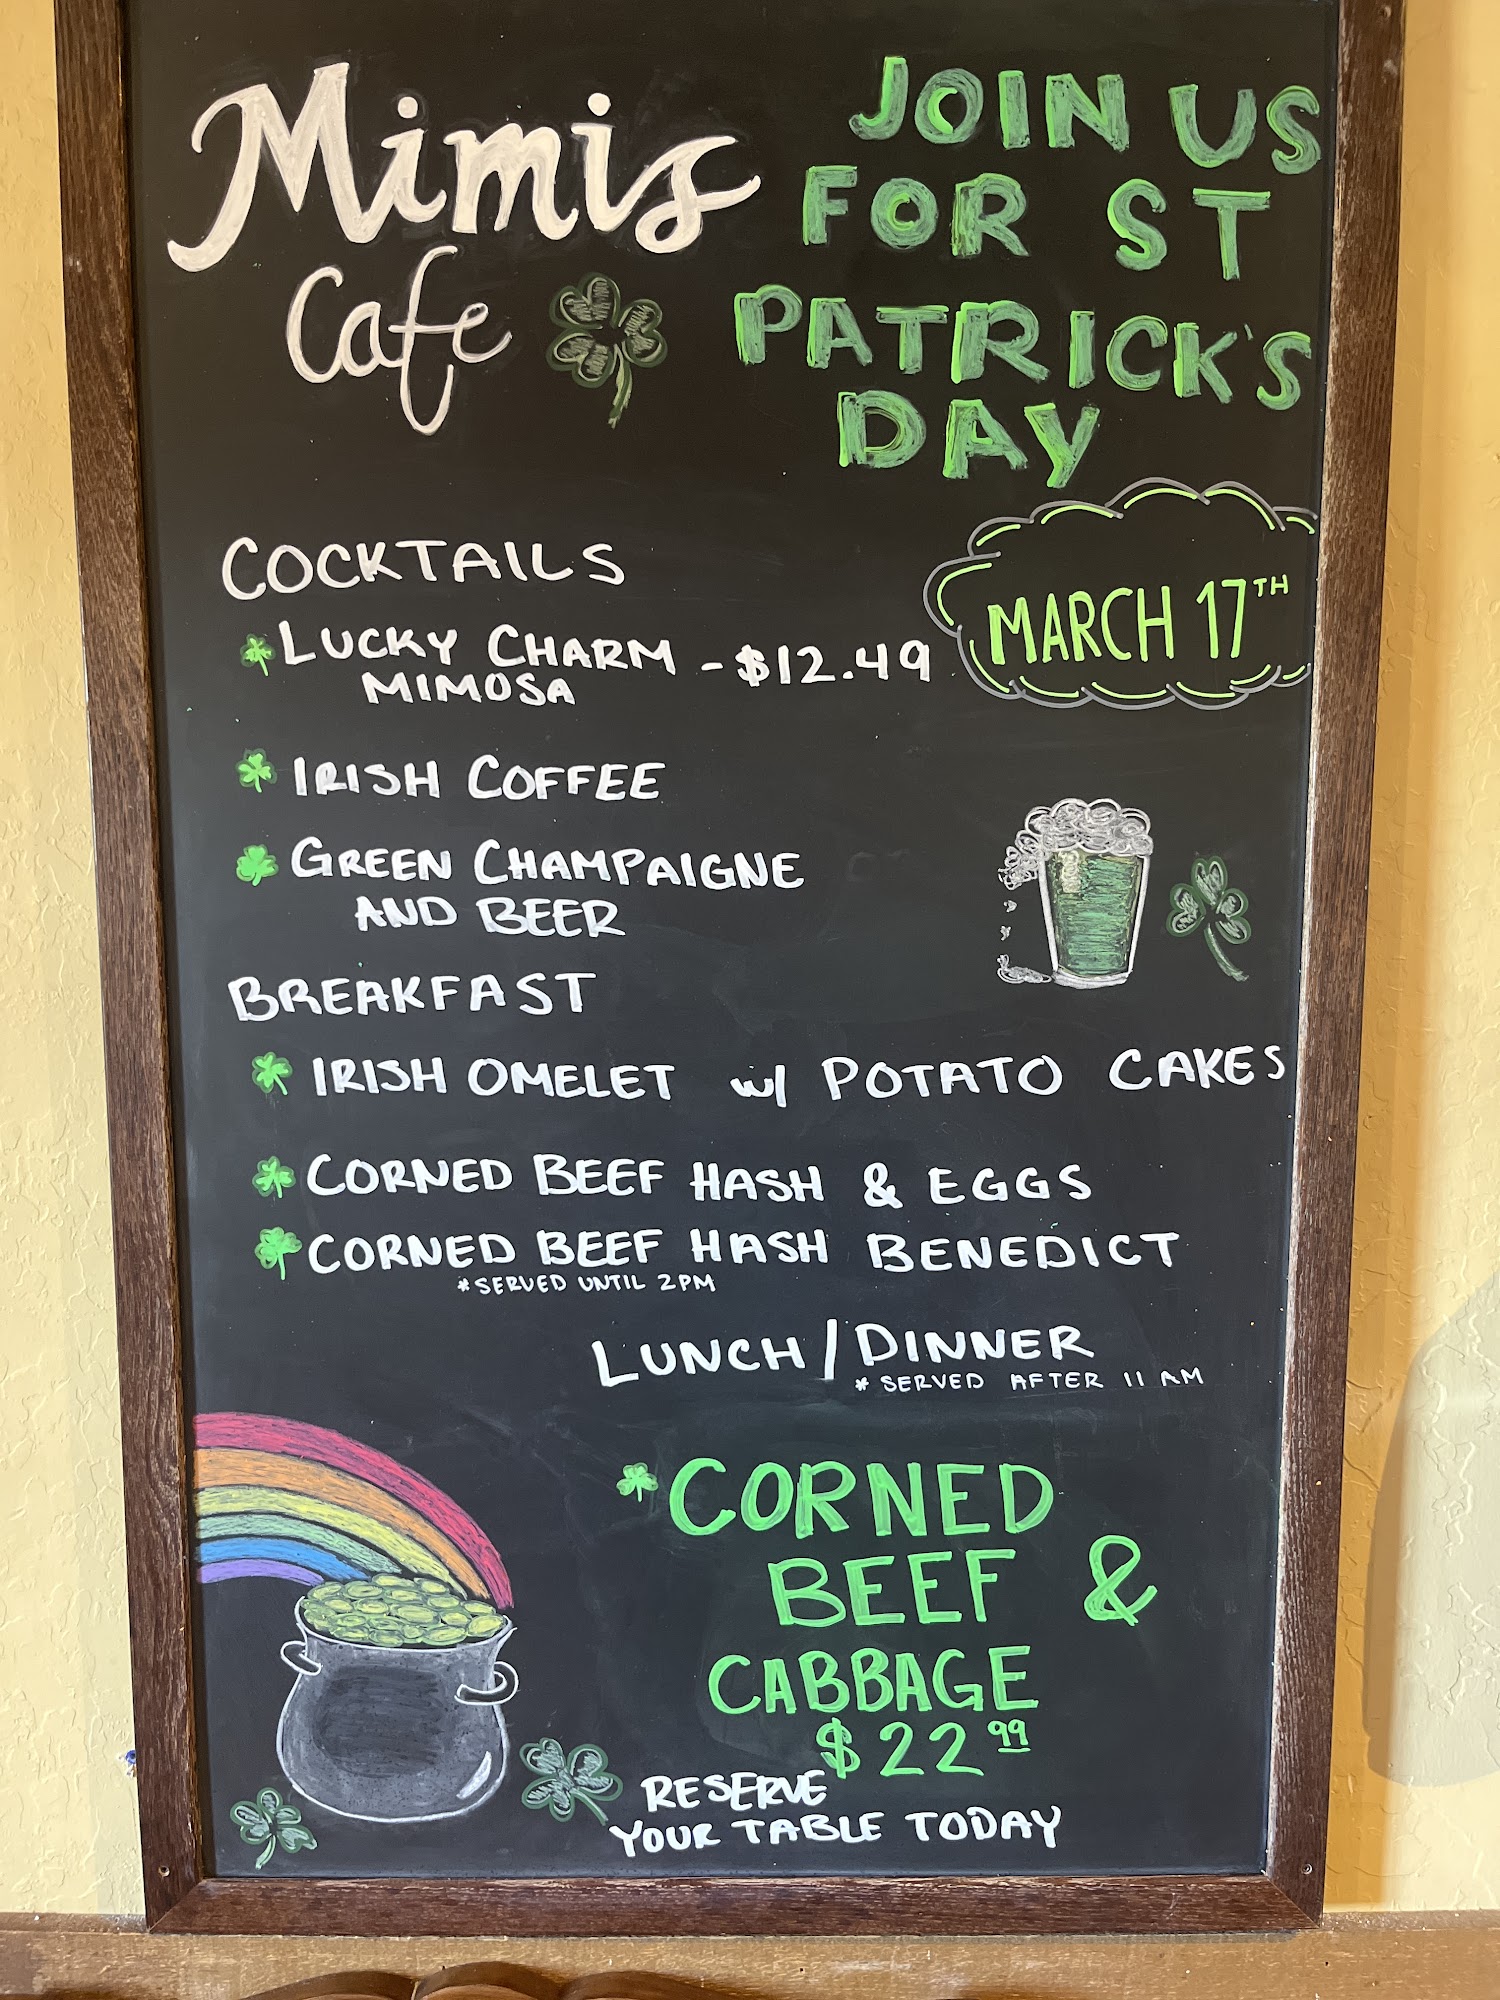 Mimis
Cafe
JOIN US
FOR ST
PATRICK'S
DAY
MARCH 17TH
COCKTAILS
LUCKY CHARM - $12.49
MIMOSA
IRISH COFFEE
GREEN CHAMPAIGNE
AND BEER
BREAKFAST
IRISH OMELET w/ POTATO CAKES
CORNED BEEF HASH & EGGS
CORNED BEEF HASH BENEDICT
*SERVED UNTIL 2PM
LUNCH/DINNER
* SERVED AFTER 11 AM
CORNED
BEEF &
CABBAGE
$22 99
RESERVE
YOUR TABLE TODAY